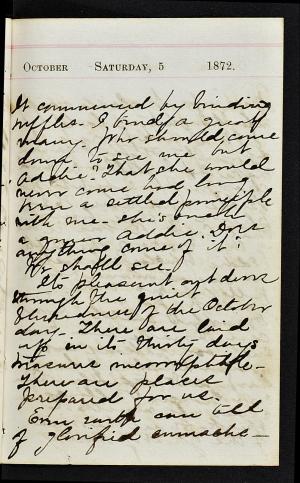 October Saturday, 5 1872.
It commenced by binding
ruffles. I bind a great
many. Who should come
down to see me but
Addie? That she would
never come had long
been a settled principle
with me. She's once
a Addie. Does
anything come of it?
We shall see.
Its pleasant out doors
through the quiet
of the October
day. There are laid
up in its thirty days
measure incorruptible.
There are places
prepared for us.
Even earth can tell
of glorified